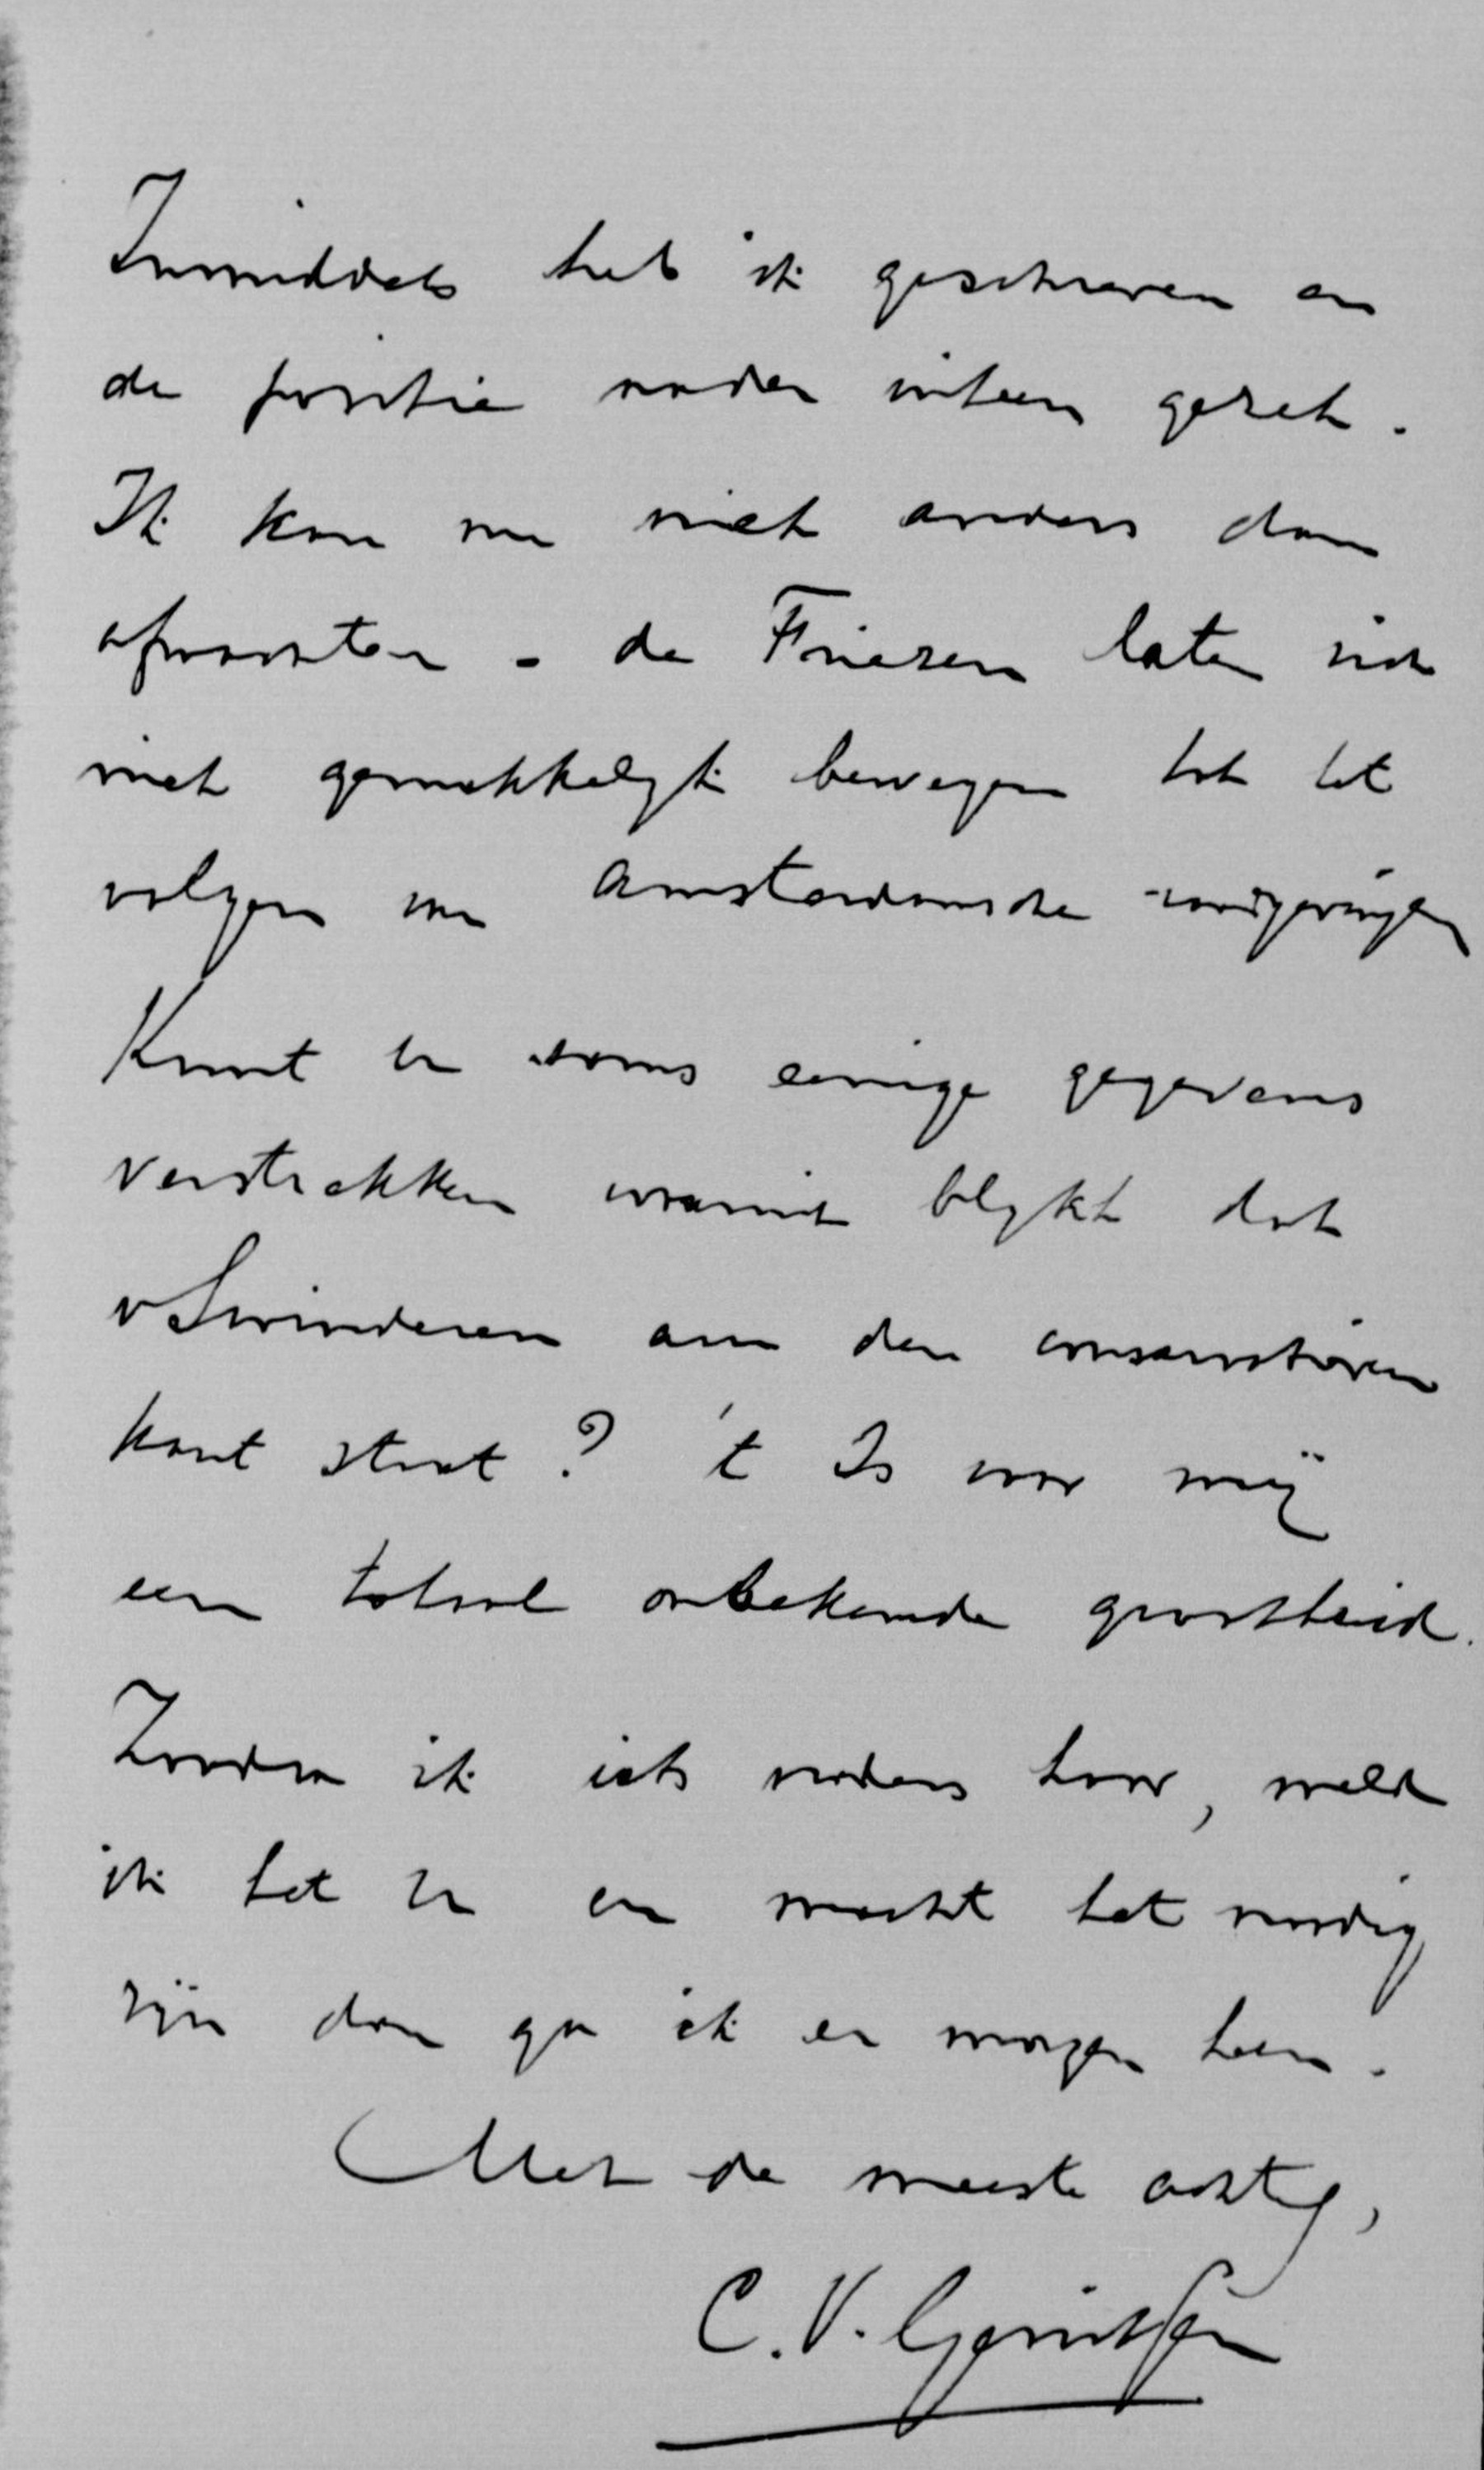 Inmiddels heb ik geschreven en
de positie nader uiteen gezet.
Ik kan nu niet anders dan
afwachten - de Friezen laten zich
niet gemakkelijk bewegen tot het
volgen van Amsterdamsche
Kunt U soms eenige gegevens
verstrekken waaruit blykt dat
v Swinderen aan den conservatieven
kant staat? 't Is voor mij
een totaal onbekende grootheid.
Zoodra ik iets naders hoor, meld
ik het U en mocht het noodig
zijn dan ga ik er morgen heen.
Met de meeste achtg,
C. V. Gerritsen